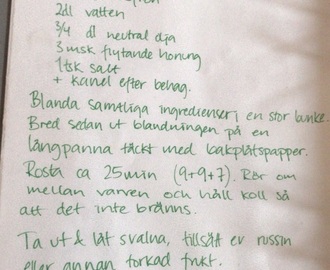 2dl vatten
3/4 dl neutral olja
3 msk flytande honung
1 tsk salt
+ kanel efter behag.
Blanda samtliga ingredienser i en stor bunke.
Bred sedan ut blandningen på en
långpanna täckt med bakplåtspapper.
Rosta ca 25 min (9+9+7). Rör om
mellan varven och håll koll så
att det inte bränns.
Ta ut & låt svalna, tillsätt ev russin
eller annan torkad frukt.